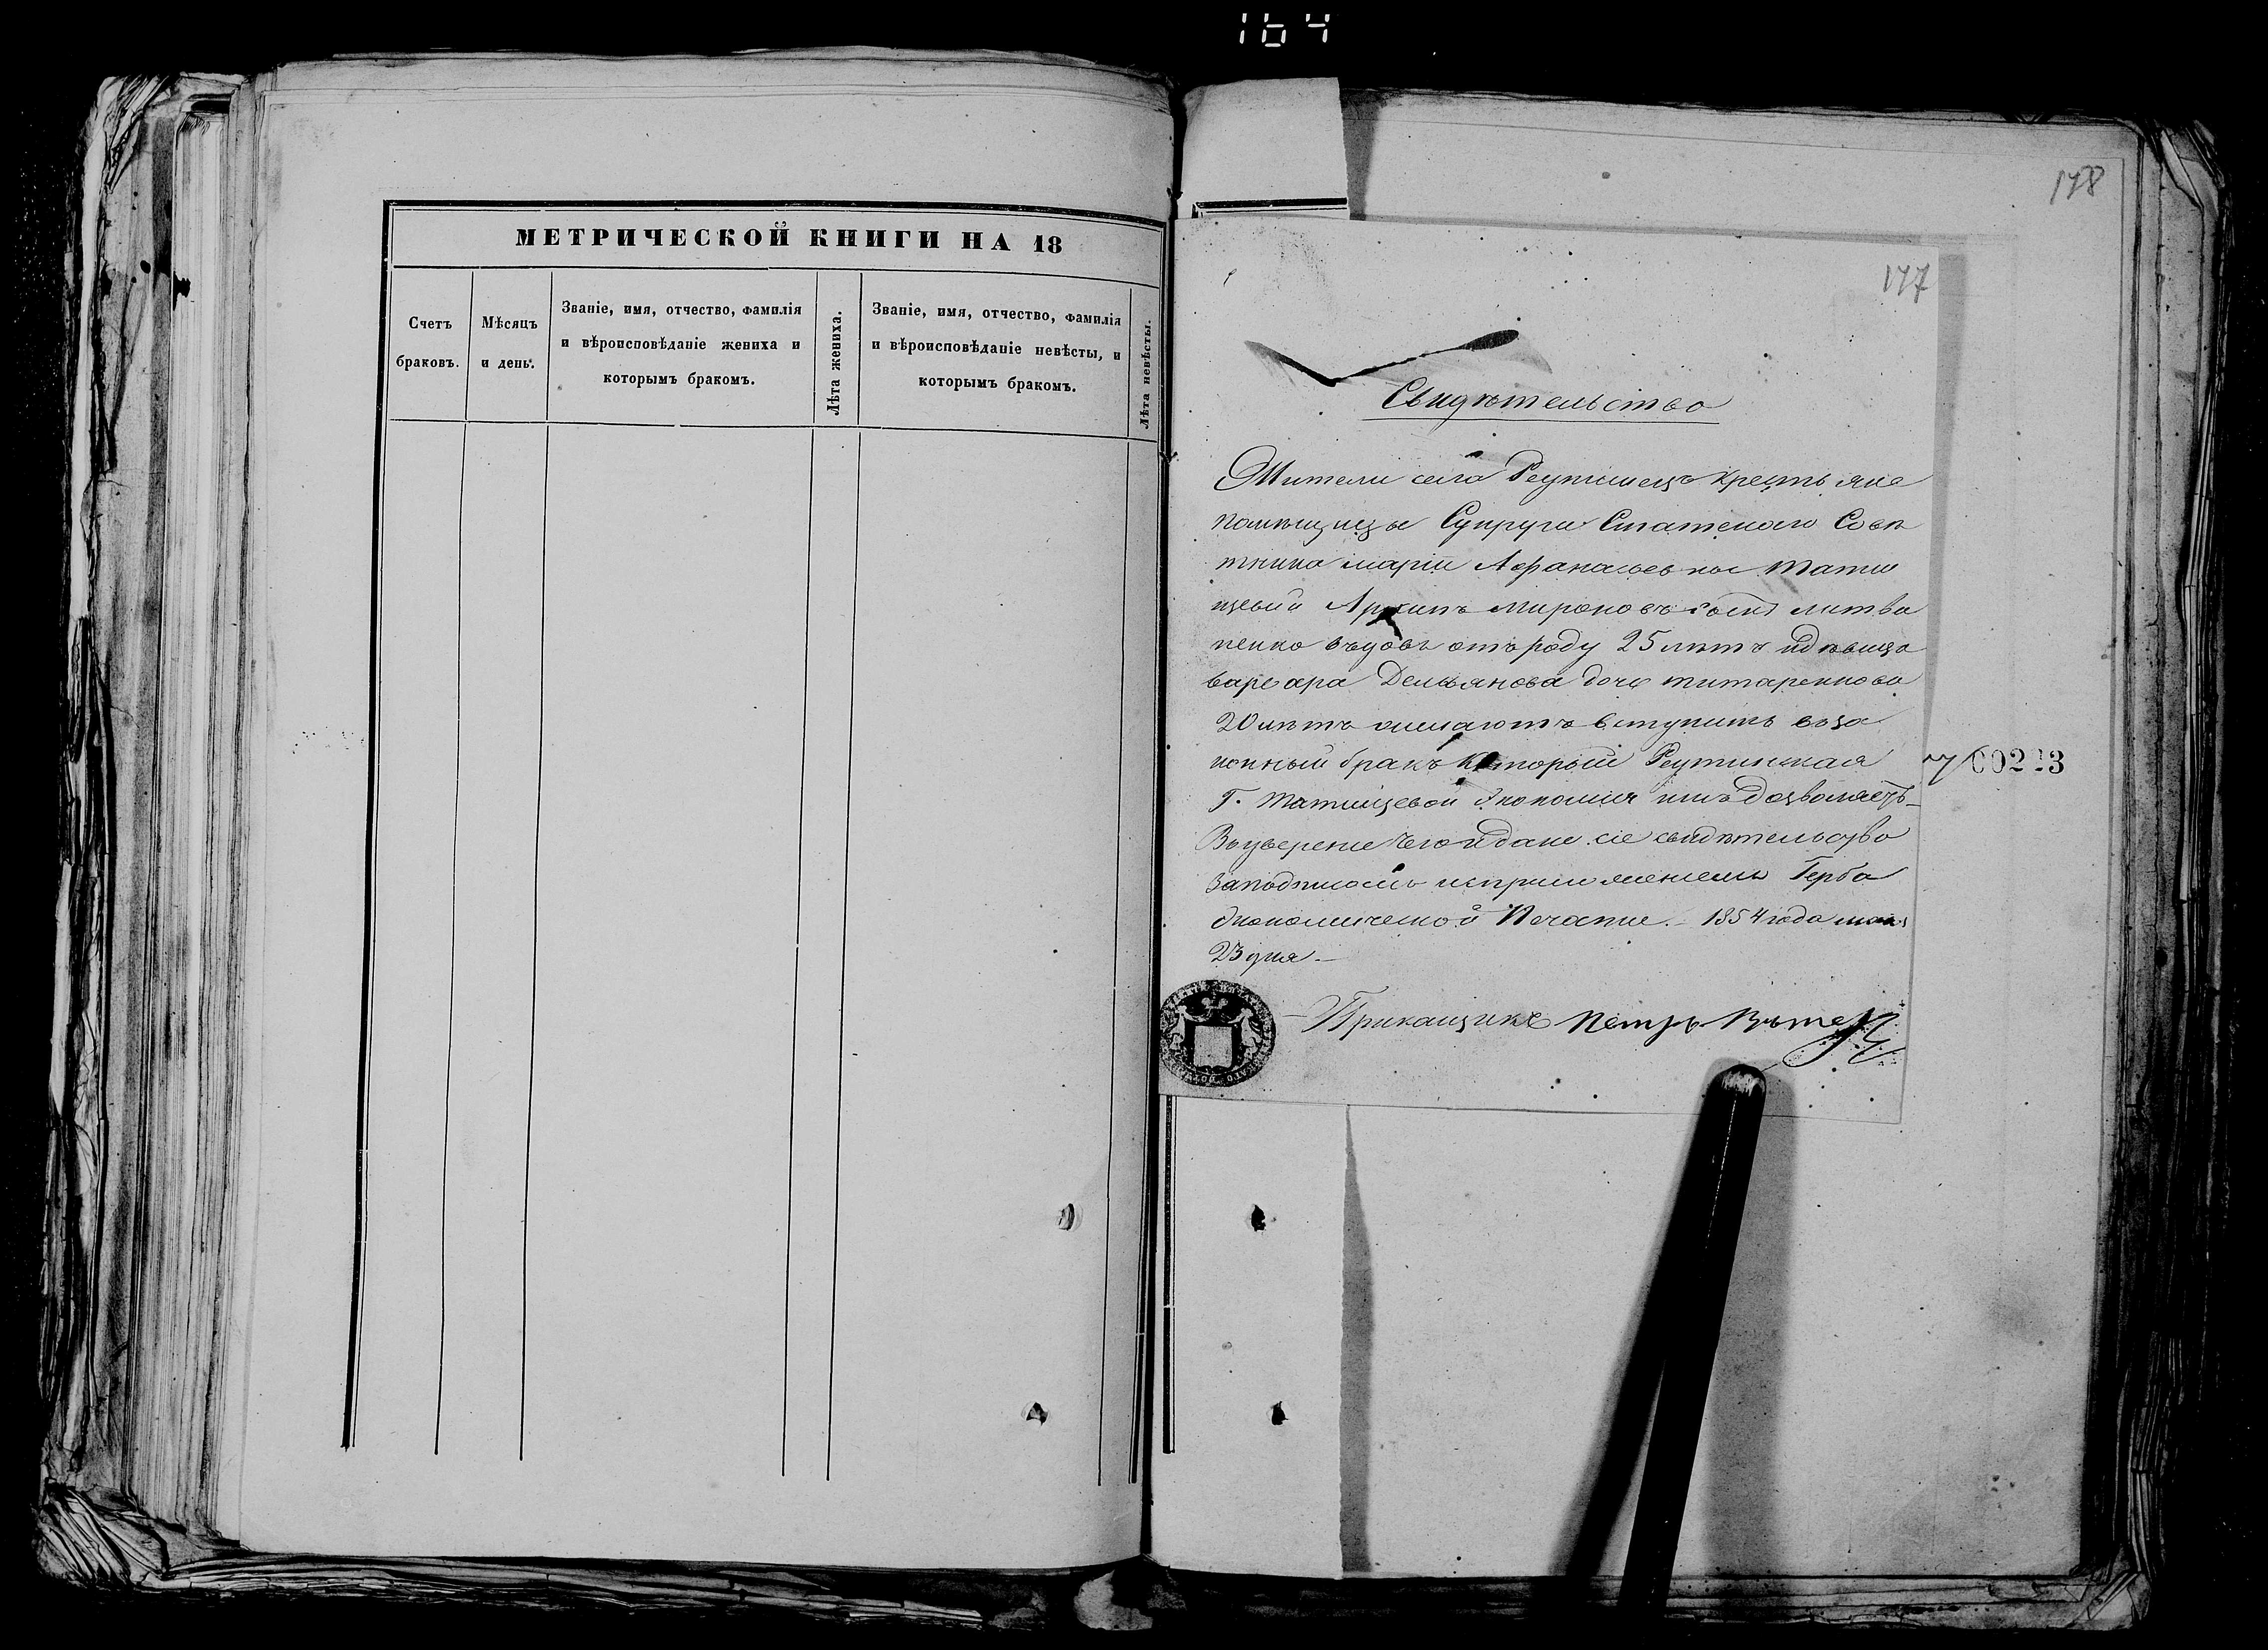 164
МЕТРИЧЕСКОЙ КНИГИ НА 18
Счетъ
браковъ.
Мѣсяцъ
и день.
Званіе, имя, отчество, фамилія
и вѣроисповѣданіе жениха и
которымъ бракомъ.
Лѣта жениха.
Званіе, имя, отчество, фамилія
и вѣроисповѣданіе невѣсты, и
которымъ бракомъ.
Лѣта невѣсты.
178
177
Свидѣтельство
Жители села Реутинецъ крестьяне
помѣщицы Супруги Статскаго Совѣ
тника Маріи Афанасьевны Тати
щевой Архипъ Мироновъ сынъ Литва
ненко вдовъ отъ роду 25 лѣтъ и дѣвица
Варвара Демьянова дочь Титаренкова
20 лѣтъ желаютъ вступить въ за
конный бракъ который Реутинская
Г. Татищевой Экономія имъ дозволяетъ_
Въ уверение чего и дано сіе свидѣтельство
за подписомъ и съ приложениемъ Герба
Экономической Печати. 1854 года мая
23 дня_
00213
Прикащикъ Петръ